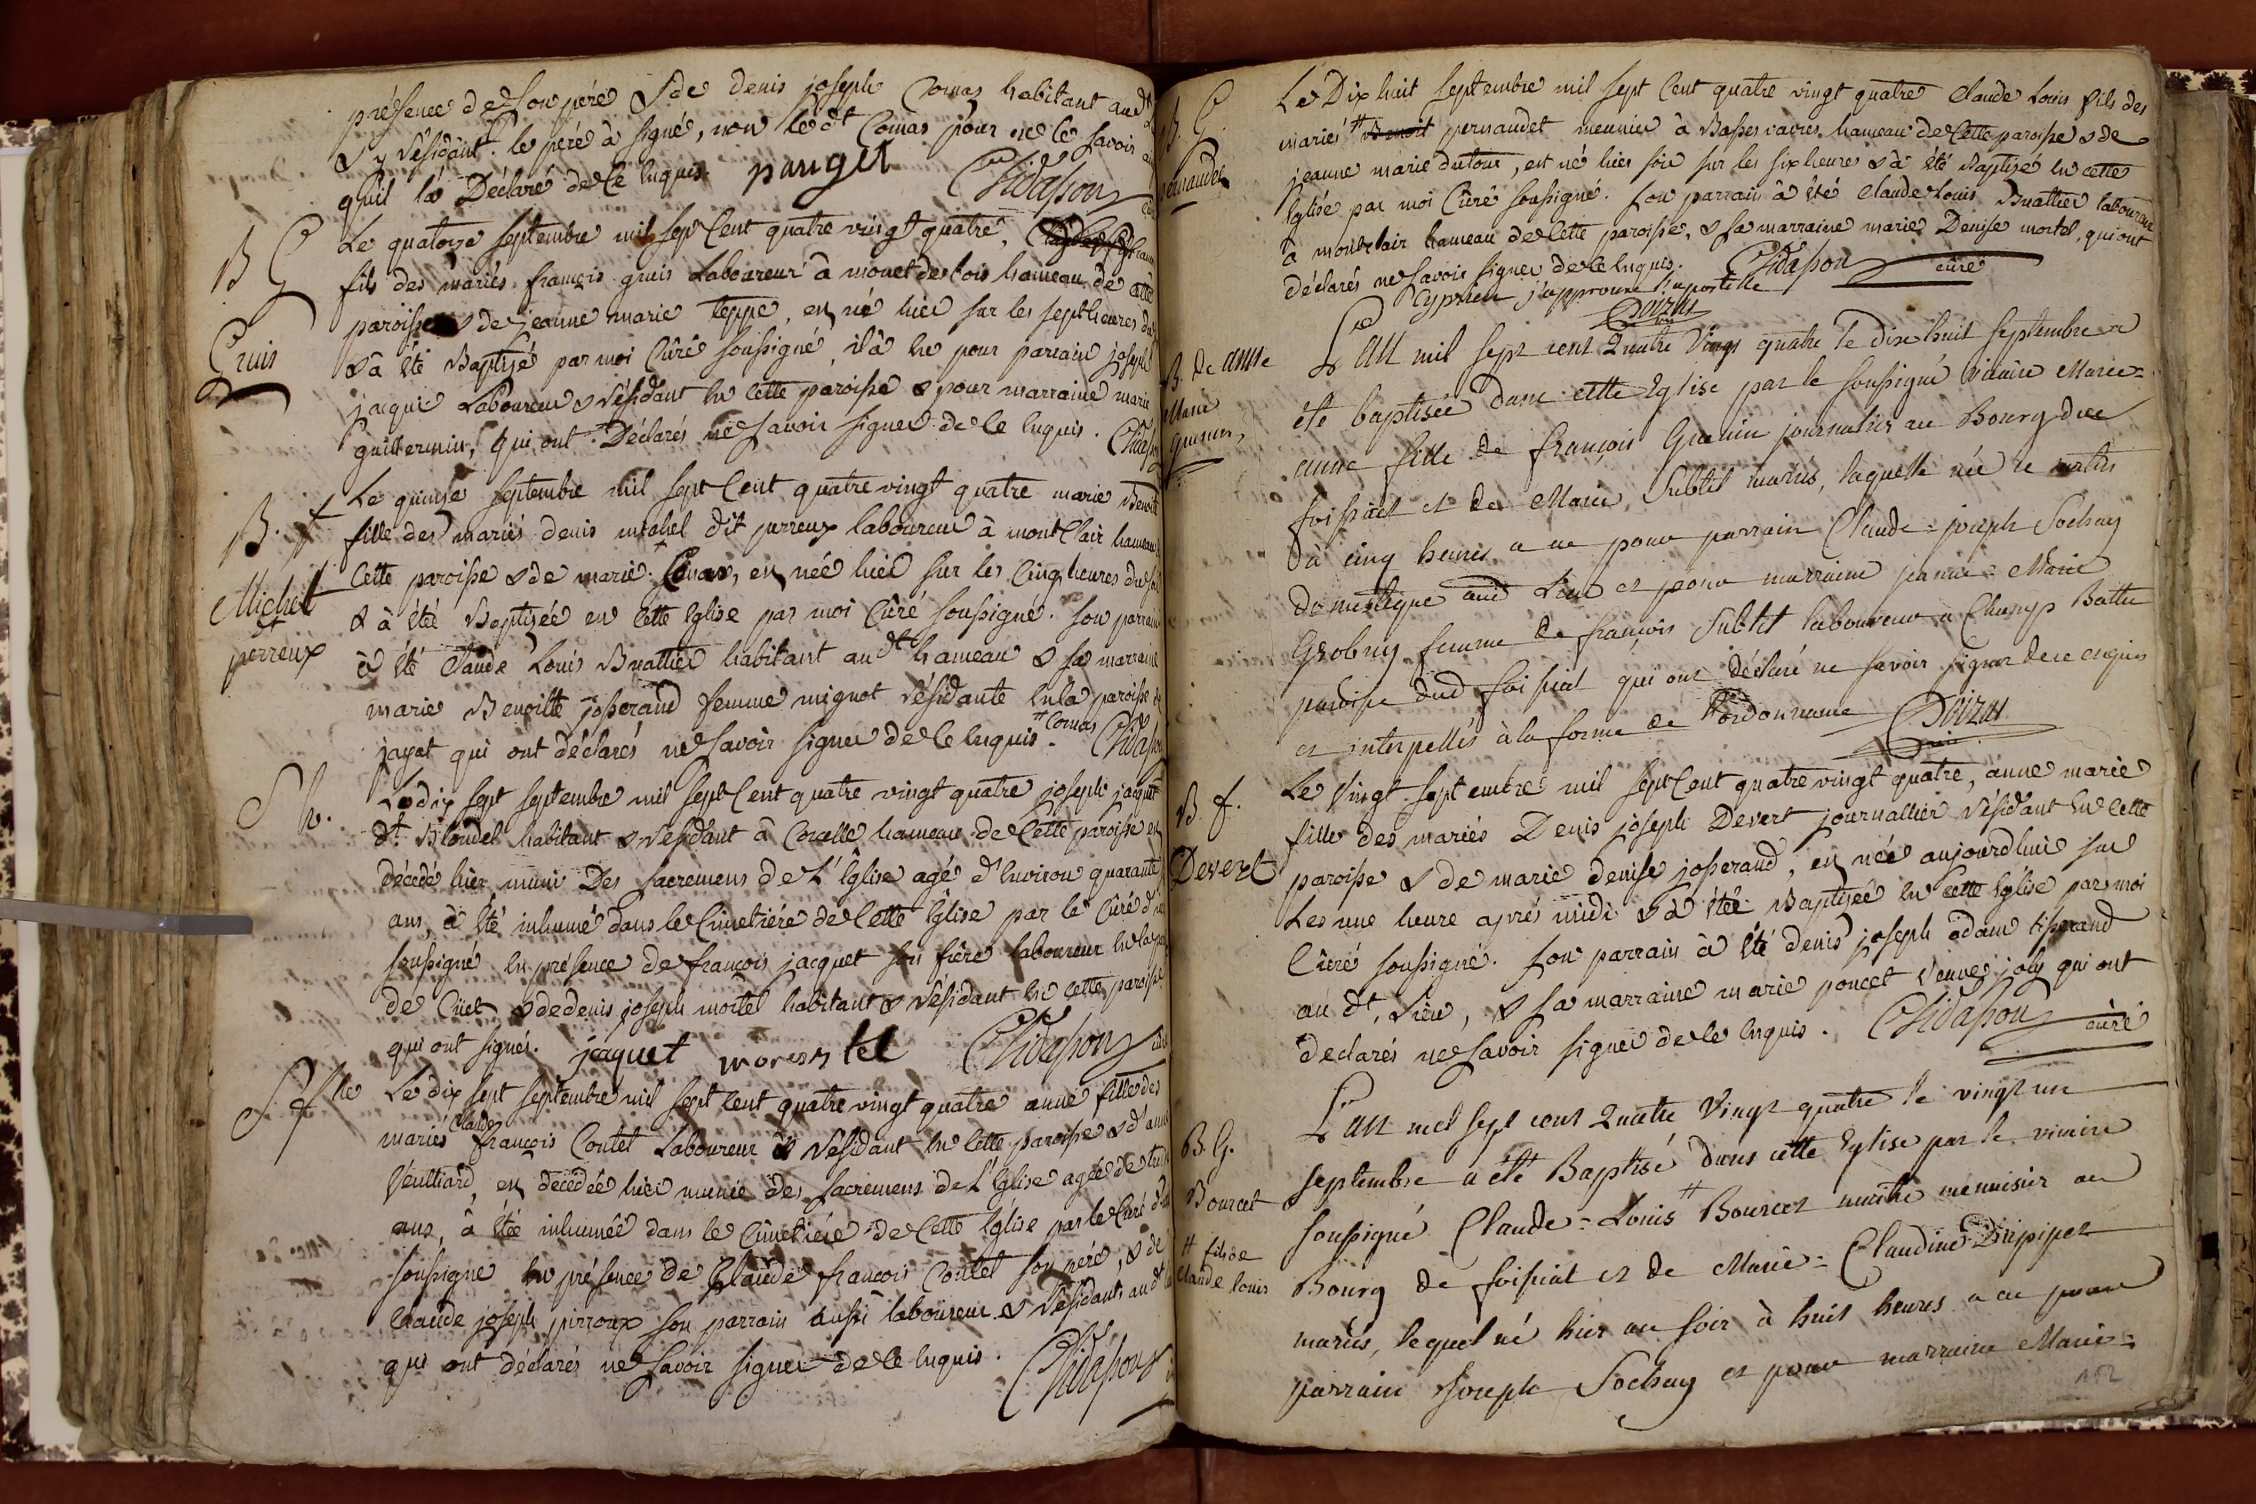 présence de son père & de denis joseph Comas habitant aud.t
& y résidant. le père à signé, non led.t Comas pour ne le savoir
qu'il là Déclaré de ce Enquis. panget Chidapon
B G
Gruis
Le quatorze septembre mil sept Cent quatre vingt quatre,
fils des mariés françois gruis Laboureur à monet des bois hameau de cette
paroisse & de jeanne marie teppe, en né hier sur les sept heures du
& à été Baptisé par moi Curé soussigné, il à eu pour parrain joseph
jacquie Laboureur & résidant en cette paroisse & pour marraine marie
guillermin, qui ont Déclarés ne savoir signer de ce Enquis. Chidapon
B. f
Michel
dt
perreux
Le quinze septembre mil sept Cent quatre vingt quatre marie Benoite
fille des mariés denis michel dit perreux laboureur à mont Clair hameau
Cette paroisse & de marie, en née hier sur les Cinq heures du soir
& à été Baptisée en Cette Eglise par moi Curé soussigné. son parrain
à été Claude Louis Buattier habitant aud.t hameau & sa marraine
marie Benoitte josserand femme mignot résidante En la paroisse de
jayat qui ont déclarés ne savoir signer de ce Enquis. # Comas Chidapon
S h.
Le dix sept septembre mil sept Cent quatre vingt quatre joseph jacquet
d.t Blondel habitant & résidant à Corcelle hameau de Cette paroisse en
décédé hier muni Des sacremens de L'Eglise agé d'Environ quarante
ans, à été inhumé dans le Cimetière de Cette Eglise par le Curé d'icelle
soussigné En présence de françois jacquet son frère laboureur En la par
de Cuet & de denis joseph mortel habitant & résidant En cette paroisse
qui ont signés. jaquet mortel Chidapon curé
S. f lle
Le dix sept septembre mil sept Cent quatre vingt quatre anne fille des
mariés Claude françois Contet Laboureur & résidant En Cette paroisse & d'anne
Veulliard, en décédée hier munie des sacremens de L'Eglise agée de
ans, à été inhumée dans le Cimetière de Cette Eglise par le Curé d'icelle
soussigné En présence de Claude françois Contet son père, & de
Claude joseph pirroux son parrain aussi laboureur & résidants aud.t
qui ont déclarés ne savoir signer de ce Enquis. Chidapon
B. G.
pernaudet
Le Dix huit septembre mil sept Cent quatre vingt quatre Claude Louis fils des
mariés # Benoit pernaudet meunier à Basses vavres hameau de Cette paroisse & de
jeanne marie dutour, en né hier soir sur les six heures & à été Baptisé en cette
Eglise par moi Curé soussigné. son parrain à été Claude Louis Buattier laboureur
à montclair hameau de Cette paroisse, & sa marraine marie Denise mortel, qui ont
déclarés ne savoir signer de ce Enquis. Chidapon curé
# Cyprien j'approuve l'apostille
B. de anne
Marie
guenin
Doizus
L'an mil sept cent Quatre Vingt quatre le dix huit septembre a
été baptisée dans cette Eglise par le soussigné vicaire Marie=
anne fille de françois Guenin journalier au Bourg due
foissiat et de Marie Subtil mariés, laquelle née le matin
à cinq heures a eu pour parrain Claude=joseph Sochay
domestique aud Lieu et pour marraine jeanne=Marie
Grobuy femme de françois Subtil laboureur a Champ Battu
paroisse dud foissiat qui ont déclaré ne savoir signer de ce enquis
et interpellés à la forme de l'ordonnance Doizus
B f.
Devert
Le Vingt septembre mil sept Cent quatre vingt quatre, anne marie
fille des mariés Denis joseph Devert journallier résidant En Cette
paroisse & de marie denise josserand, en née aujourdhui sur
Les une heure après midi & à été Baptisée En Cette Eglise par moi
Curé soussigné. son parrain à été denis joseph adam tisserand
au d.t Lieu, & sa marraine marie poncet veuve joly qui ont
déclarés ne savoir signer de ce Enquis. Chidapon curé
B. G.
Bourcet
# fils de
Claude louis
L'an mil sept cent Quatre Vingt quatre le vingt un
septembre a été Baptisé dans cette Eglise par le vicaire
soussigné Claude=Louis # Bourcet maitre menuisier au
Bourg de foissiat et de Marie=Claudine Dupipet
mariés, lequel né hier au soir à huit heures a eu pour
parrain joseph Sochay et pour marraine Marie=
152